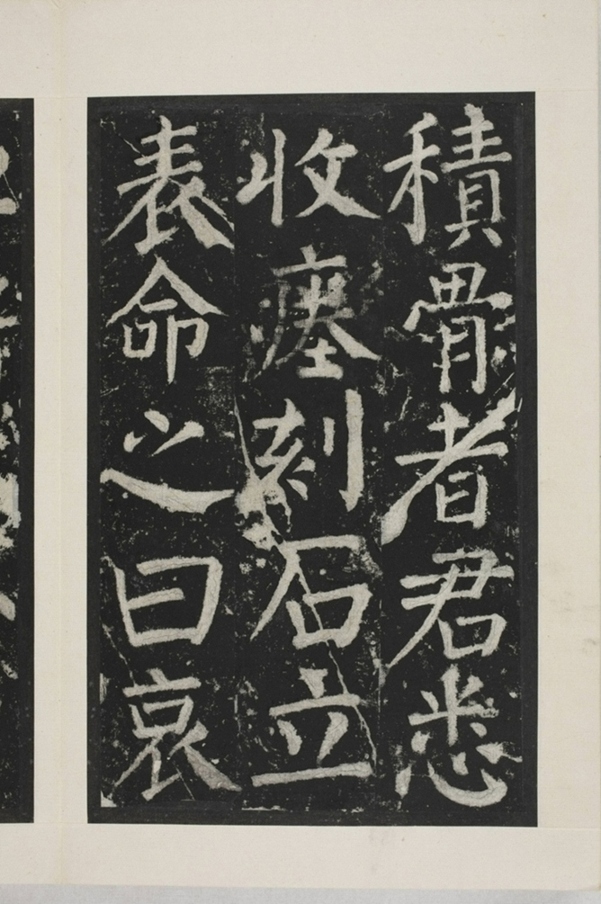 積骨者君悉
收瘞刻石立
表命之曰哀